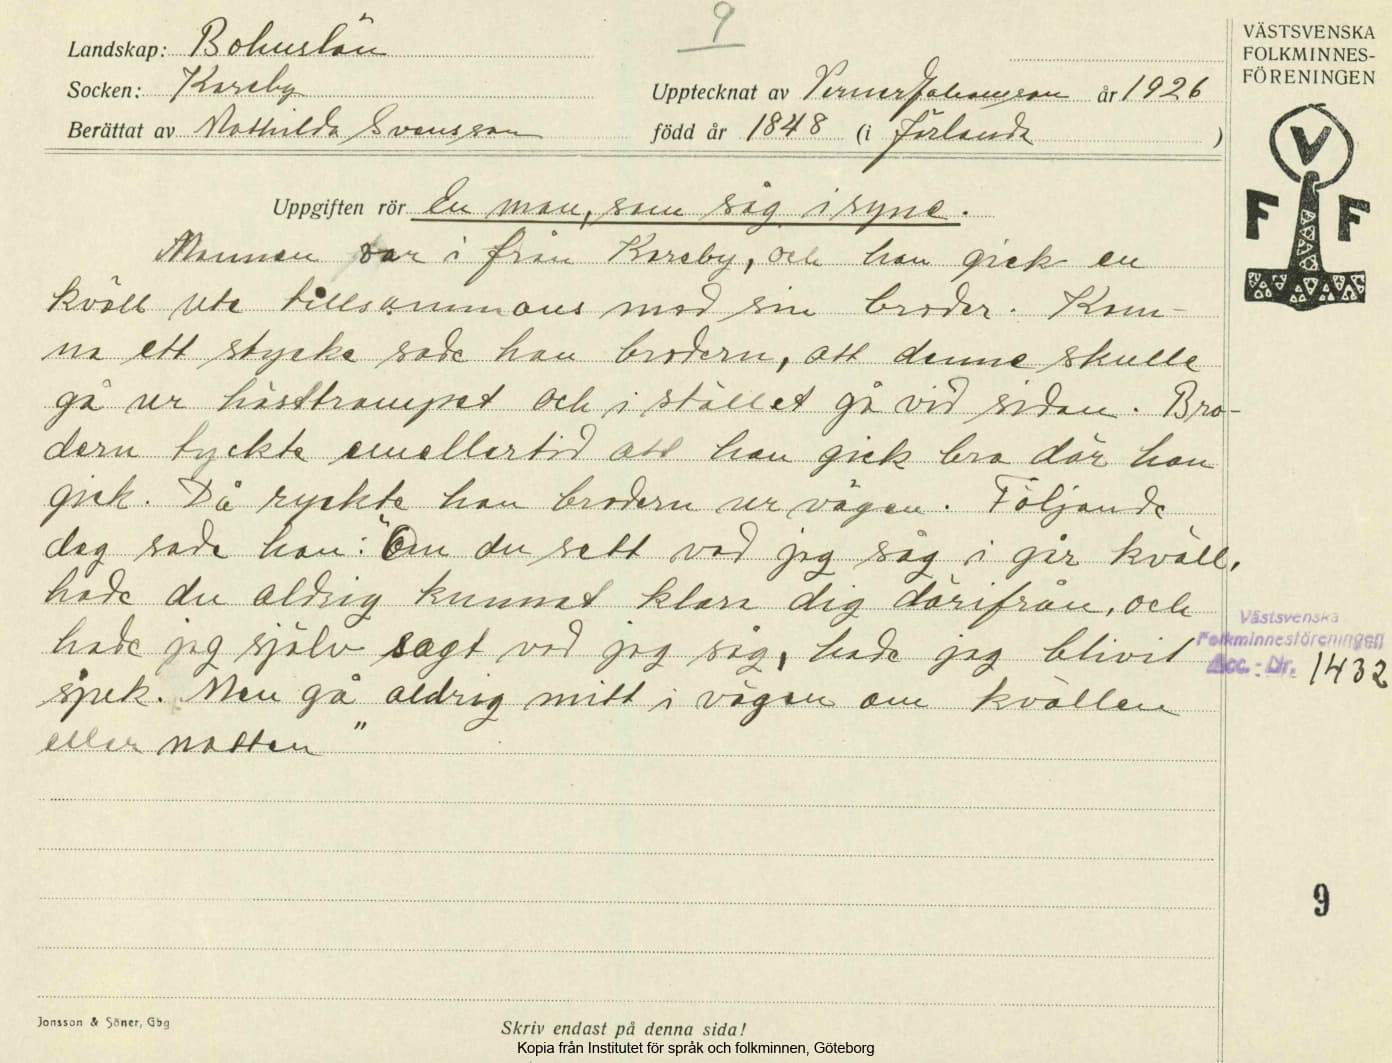 9
Landskap: Bohuslän
Socken: Kareby
Upptecknat av Verner Johansson år 1926
Berättat av Mathilda Svensson född år 1848 (i Jörlanda )
VÄSTSVENSKA
FOLKMINNES-
FÖRENINGEN
V
F F
Uppgiften rör En man, som såg i syne.
Mannen var i från Kareby, och han gick en
kväll ute tillsammans med sin broder. Kom-
na ett stycke sade han brodern, att denne skulle
gå ur hästtrampet och i stället gå vid sidan. Bro-
dern tyckte emellertid att han gick bra där han
gick. Då ryckte han brodern ur vägen. Följande
dag sade han: "Om du sett vad jag såg i går kväll,
hade du aldrig kunnat klara dig därifrån, och
hade jag själv sagt vad jag såg, hade jag blivit
sjuk. Men gå aldrig mitt i vägen om kvällen
eller natten"
Västsvenska
Folkminnesföreningen
Acc.-Nr. 1432
9
Jonsson & Söner, Gbg
Skriv endast på denna sida!
Kopia från Institutet för språk och folkminnen, Göteborg